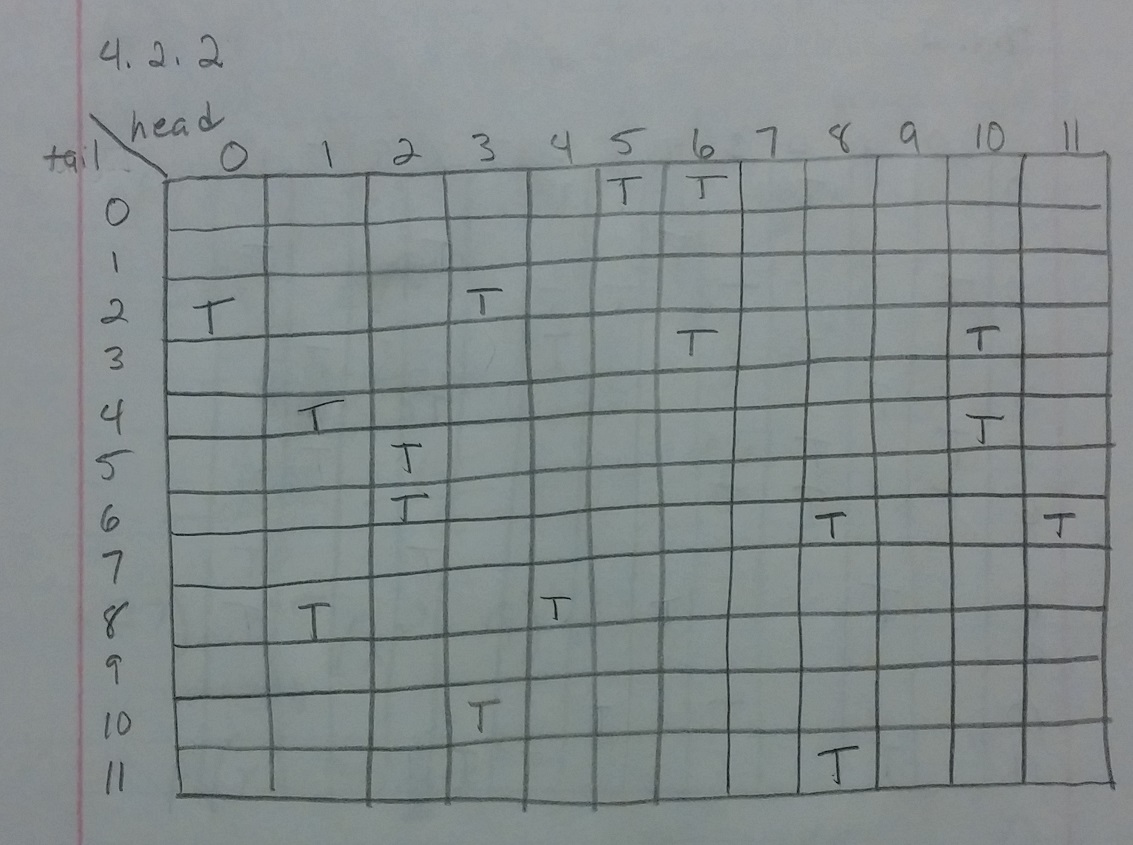 4.2.2
tail / head 0 1 2 3 4 5 6 7 8 9 10 11
0 T T
1
2 T T
3 T T
4 T
5 T T
6 T
7 T T
8 T T
9
10 T
11 T